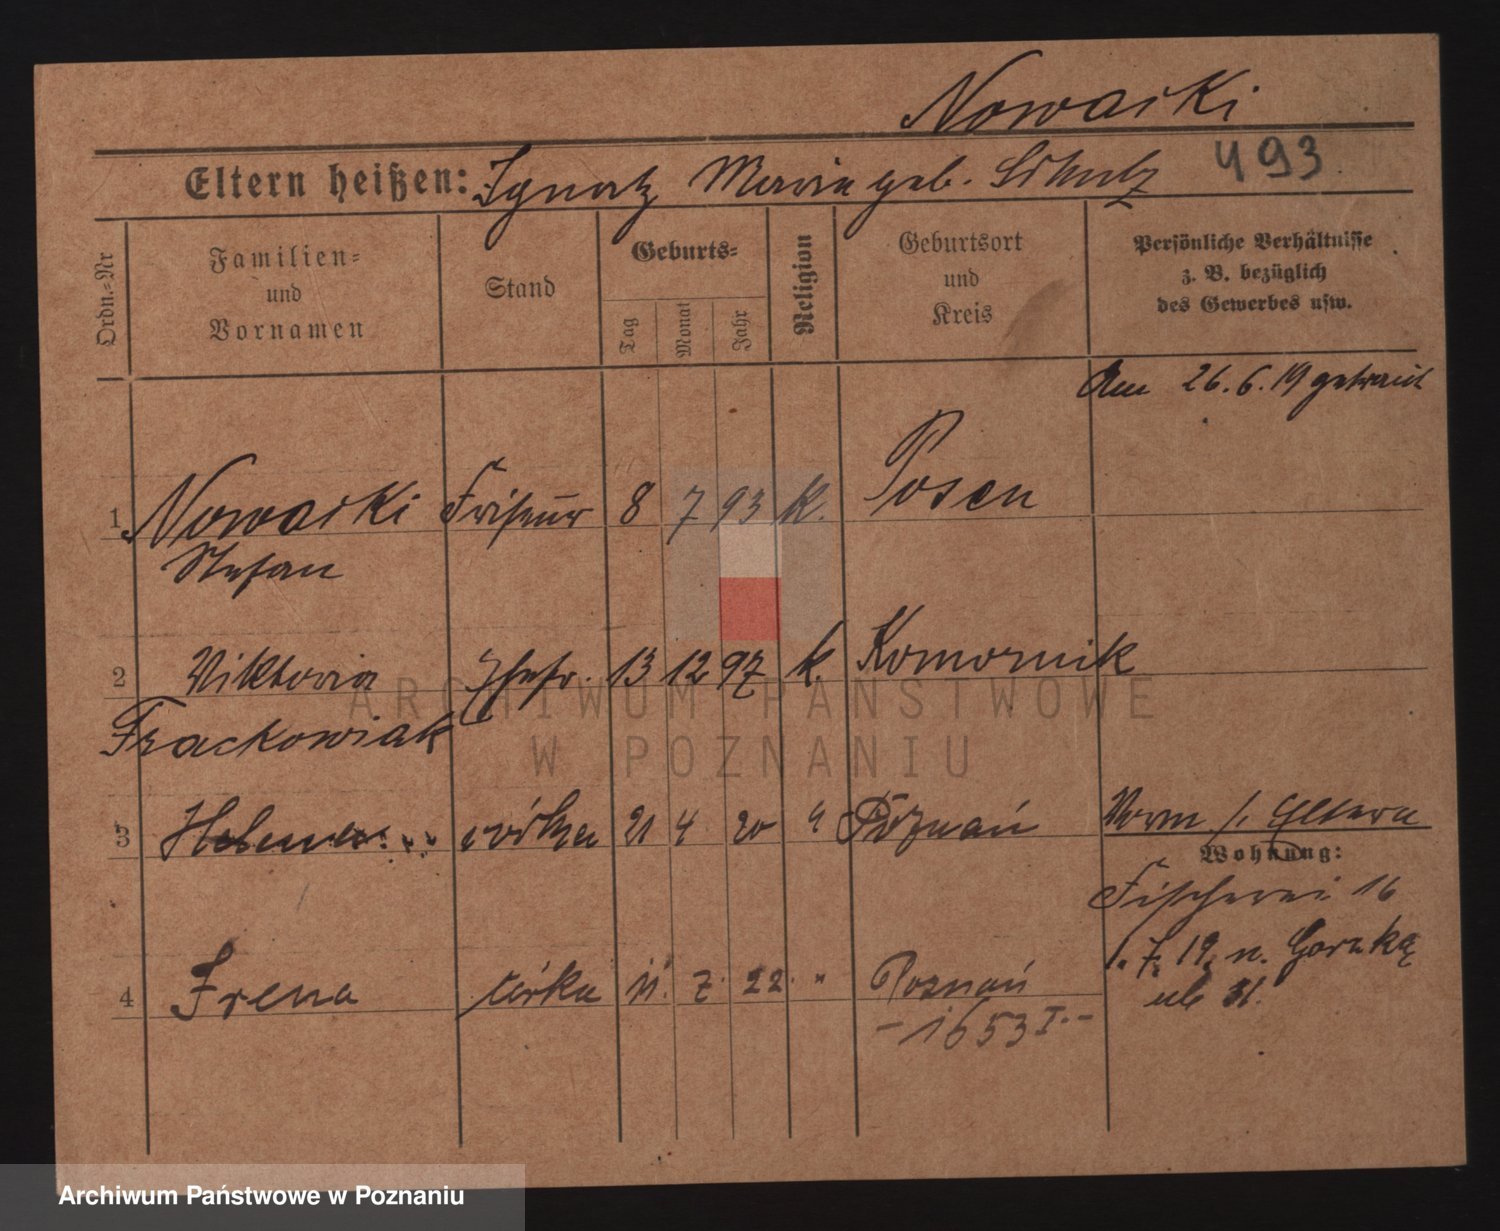 Nowacki
Eltern heißen: Ignatz Maria geb. Schulz 493
Ordn.-Nr
Familien- und Vornamen
Stand
Geburts-
Tag
Monat
Jahr
Religion
Geburtsort und Kreis
Persönliche Verhältnisse z. B. bezüglich des Gewerbes usw.
Am 26.6.19 getraut
1 Nowacki Friseur 8 7 93 K. Posen
Stefan
2 Viktoria Ehefr. 13 12 97 k. Komornik
Frackowiak
3 Helena córka 21 4 20 " Poznań Worm /. Eltern
Wohnung:
Fischerei 16
1. 7. 19. n.
4 Irena córka 11. 2. 22. " Poznań
ul. 31.
- 1653 I. -
ARCHIWUM PAŃSTWOWE
W POZNANIU
Archiwum Państwowe w Poznaniu